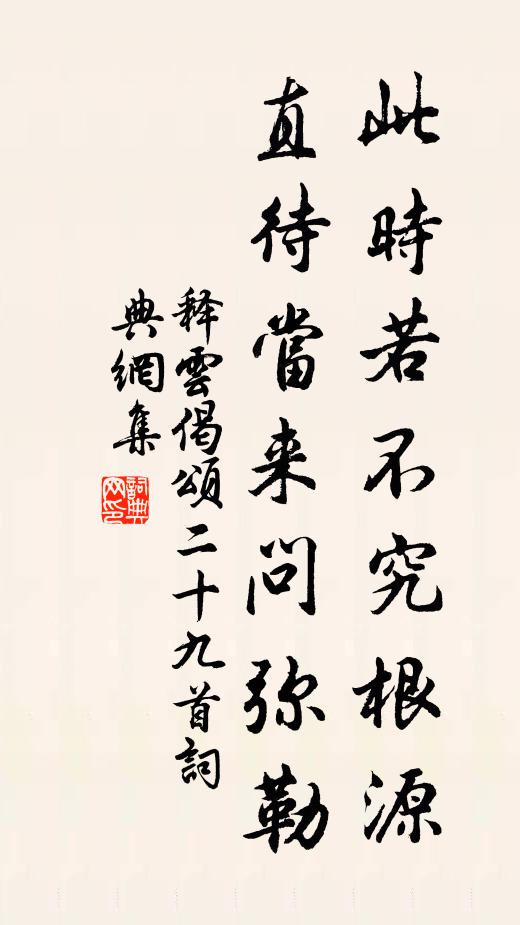 此時若不究根源
直待當来問弥勒
释雲偈頌二十九首詞
典網集
詞典網印